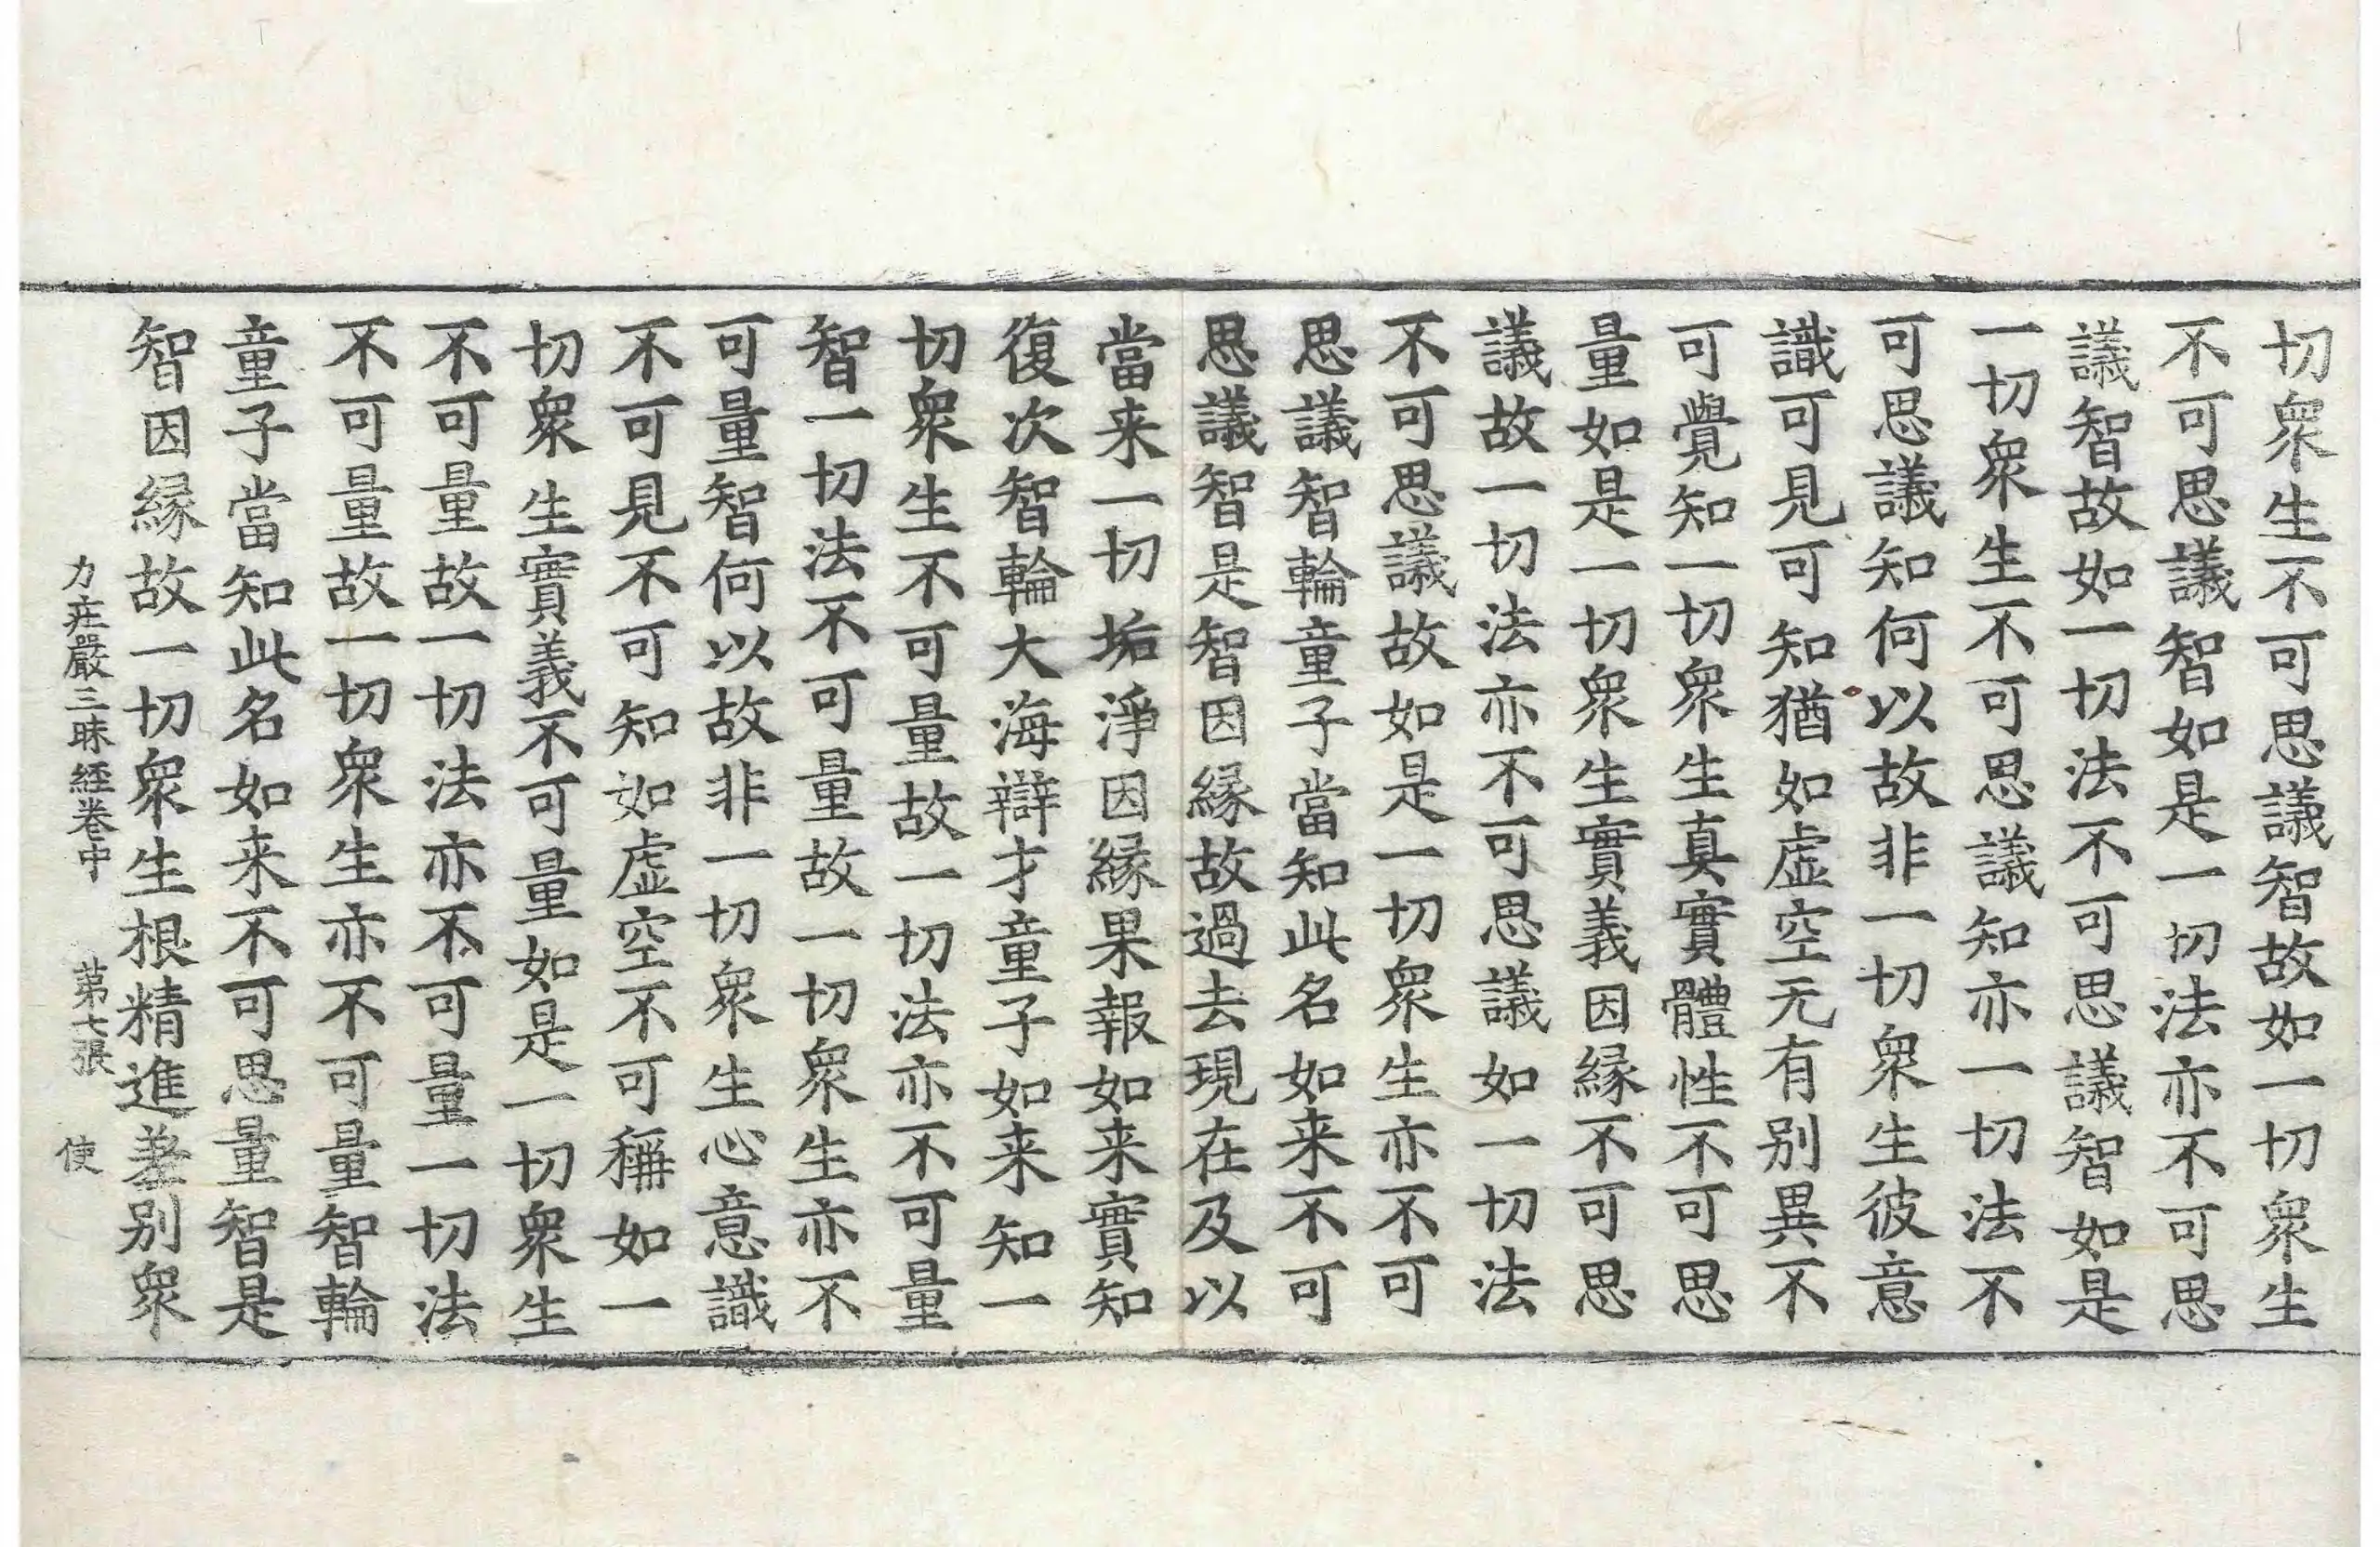 切衆生不可思議智故如一切衆生
不可思議智如是一切法亦不可思
議智故如一切法不可思議智如是
一切衆生不可思議知亦一切法不
可思議知何以故非一切衆生彼意
識可見可知猶如虛空无有别異不
可覺知一切衆生真實體性不可思
量如是一切衆生實義因緣不可思
議故一切法亦不可思議如一切法
不可思議故如是一切衆生亦不可
思議智輪童子當知此名如来不可
思議智是智因緣故過去現在及以
當来一切垢淨因緣果報如来實知
復次智輪大海辯才童子如来知一
切衆生不可量故一切法亦不可量
智一切法不可量故一切衆生亦不
可量智何以故非一切衆生心意識
不可見不可知如虛空不可稱如一
切衆生實義不可量如是一切衆生
不可量故一切法亦不可量一切法
不可量故一切衆生亦不可量智輪
童子當知此名如来不可思量智是
智因緣故一切衆生根精進差别衆
力莊嚴三昧經卷中 第七張 使